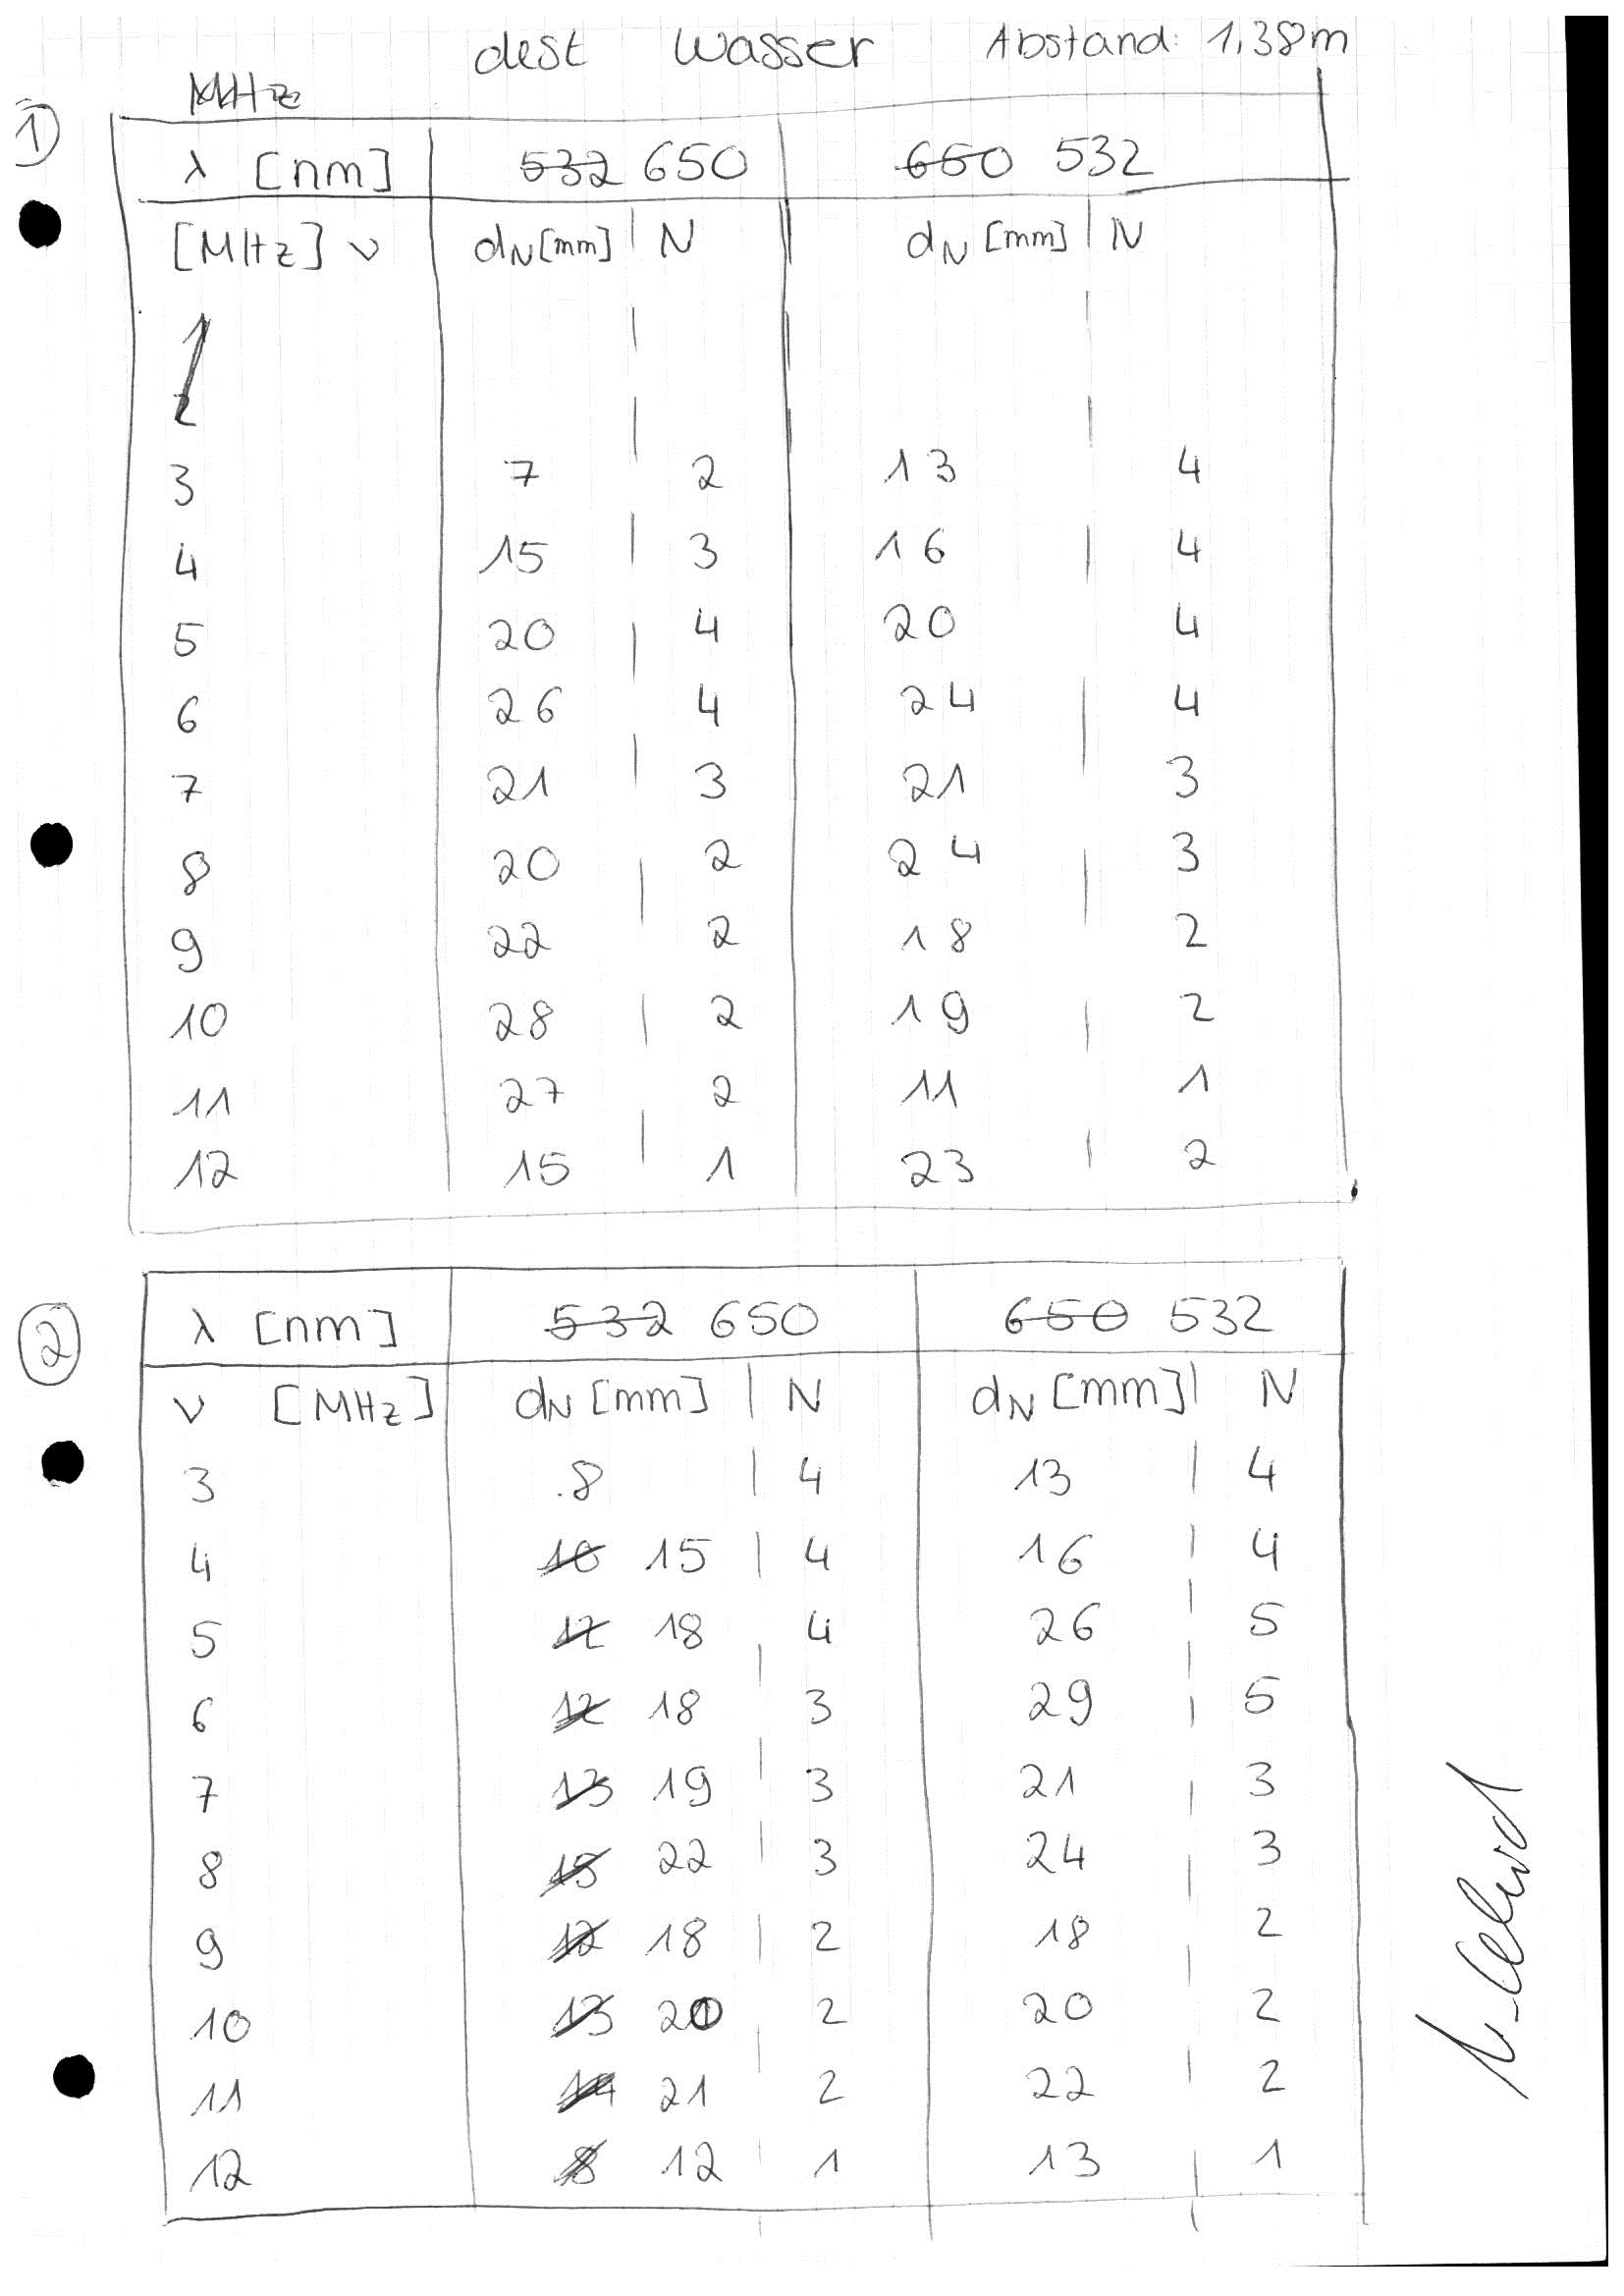 dest Wasser Abstand: 1,38m
MHz
1
λ [nm] 532 650 650 532
[MHz] ν dN [mm] N dN [mm] N
1
2
3 7 2 13 4
4 15 3 16 4
5 20 4 20 4
6 26 4 24 4
7 21 3 21 3
8 20 2 24 3
9 22 2 18 2
10 28 2 19 2
11 27 2 11 1
12 15 1 23 2
2
λ [nm] 532 650 650 532
ν [MHz] dN [mm] N dN [mm] N
3 8 4 13 4
4 10 15 4 16 4
5 12 18 4 26 5
6 12 18 3 29 5
7 13 19 3 21 3
8 15 22 3 24 3
9 12 18 2 18 2
10 13 20 2 20 2
11 14 21 2 22 2
12 8 12 1 13 1